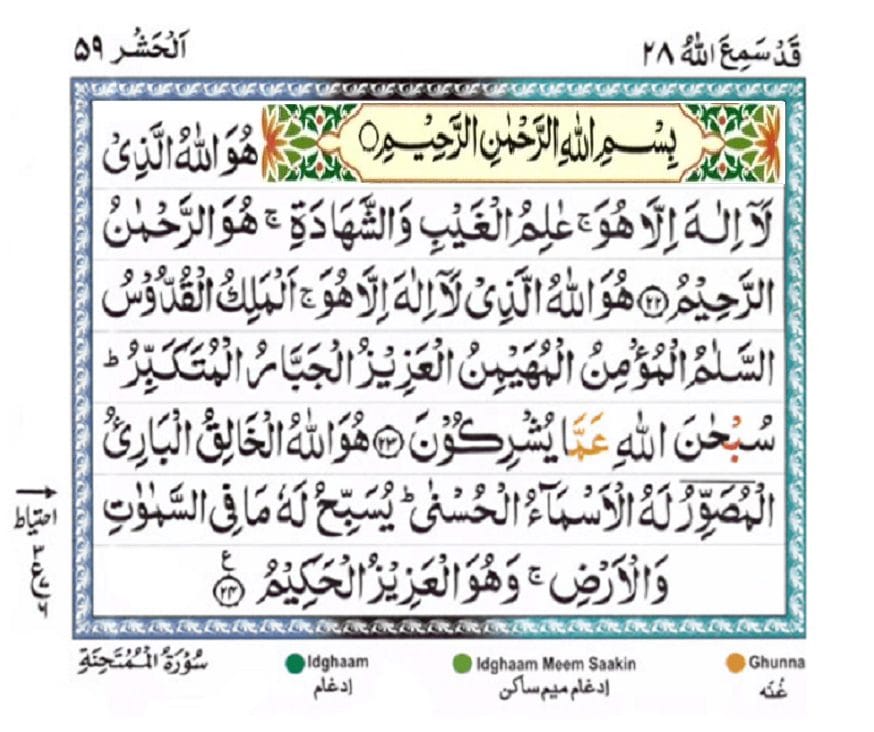 قَدْ سَمِعَ اللّٰهُ ٢٨
اَلْحَشْر ۵۹
بِسْمِ اللّٰهِ الرَّحْمٰنِ الرَّحِيْمِ ○ هُوَ اللّٰهُ الَّذِىْ
لَآ اِلٰهَ اِلَّا هُوَ ۚ عٰلِمُ الْغَيْبِ وَالشَّهَادَةِ ۚ هُوَ الرَّحْمٰنُ
الرَّحِيْمُ ﴿۲۲﴾ هُوَ اللّٰهُ الَّذِىْ لَآ اِلٰهَ اِلَّا هُوَ ۚ اَلْمَلِكُ الْقُدُّوْسُ
السَّلٰمُ الْمُؤْمِنُ الْمُهَيْمِنُ الْعَزِيْزُ الْجَبَّارُ الْمُتَكَبِّرُ ؕ
سُبْحٰنَ اللّٰهِ عَمَّا يُشْرِكُوْنَ ﴿۲۳﴾ هُوَ اللّٰهُ الْخَالِقُ الْبَارِئُ
الْمُصَوِّرُ لَهُ الْاَسْمَآءُ الْحُسْنٰى ؕ يُسَبِّحُ لَهٗ مَا فِى السَّمٰوٰتِ
وَالْاَرْضِ ۚ وَهُوَ الْعَزِيْزُ الْحَكِيْمُ ﴿۲۴﴾ ع
احتیاط
سُوْرَةُ الْمُمْتَحِنَةِ
Idghaam
إدغام
Idghaam Meem Saakin
إدغام ميم ساكن
Ghunna
غُنّه